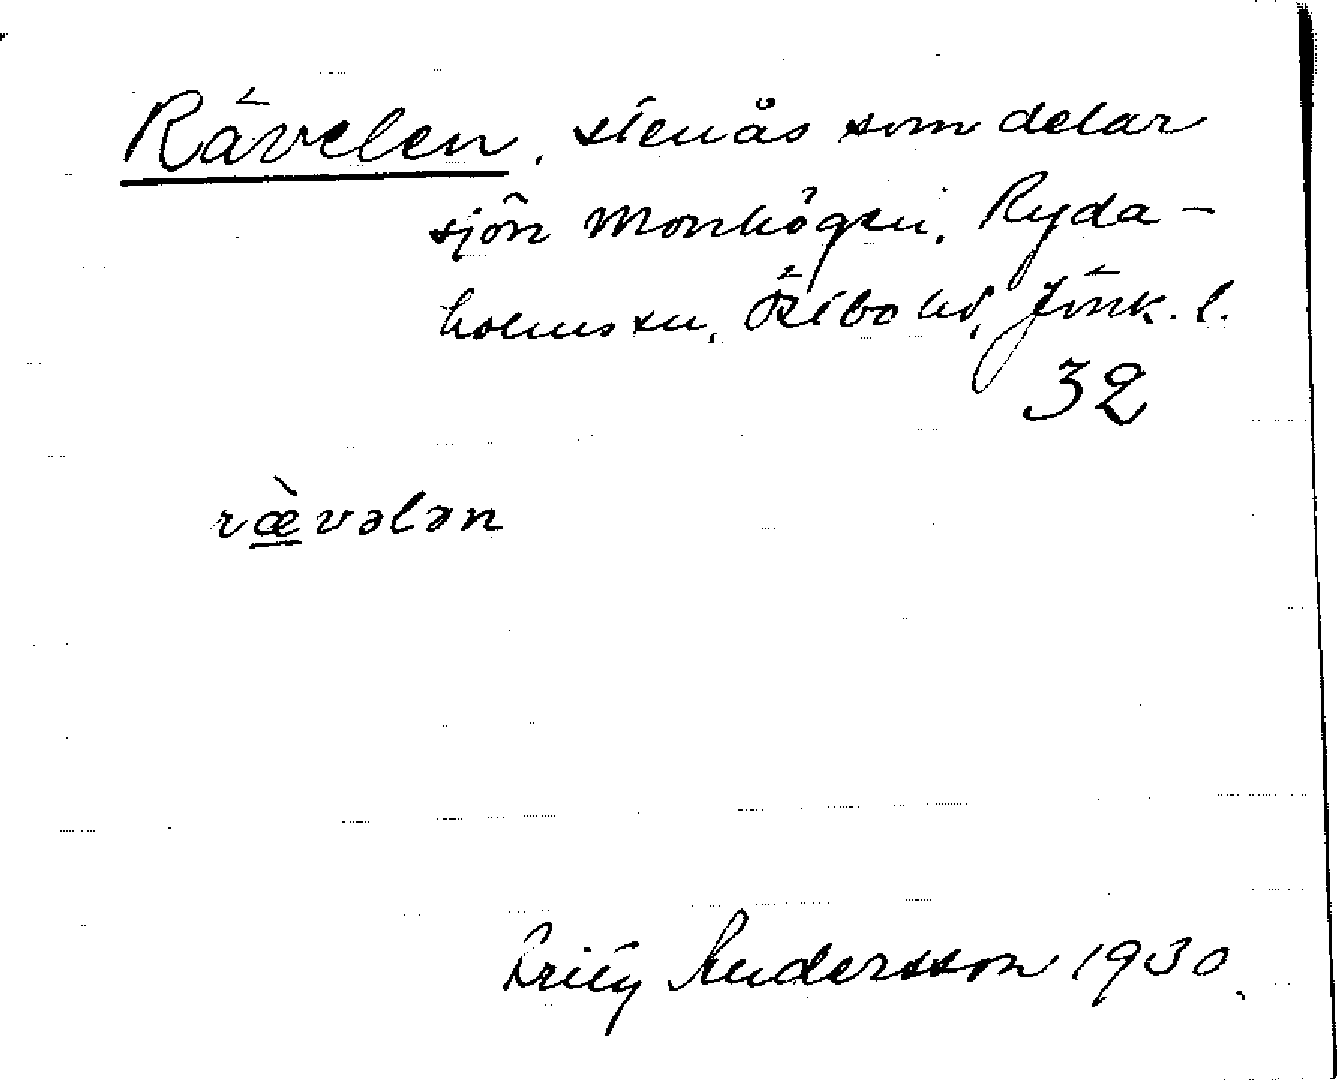 Rävelen, stenås som delar
sjön Monhögen, Ryda-
holms sn, Östbo hd, Jönk. l.
32
ræ̀vələn
Fritz Andersson 1930.